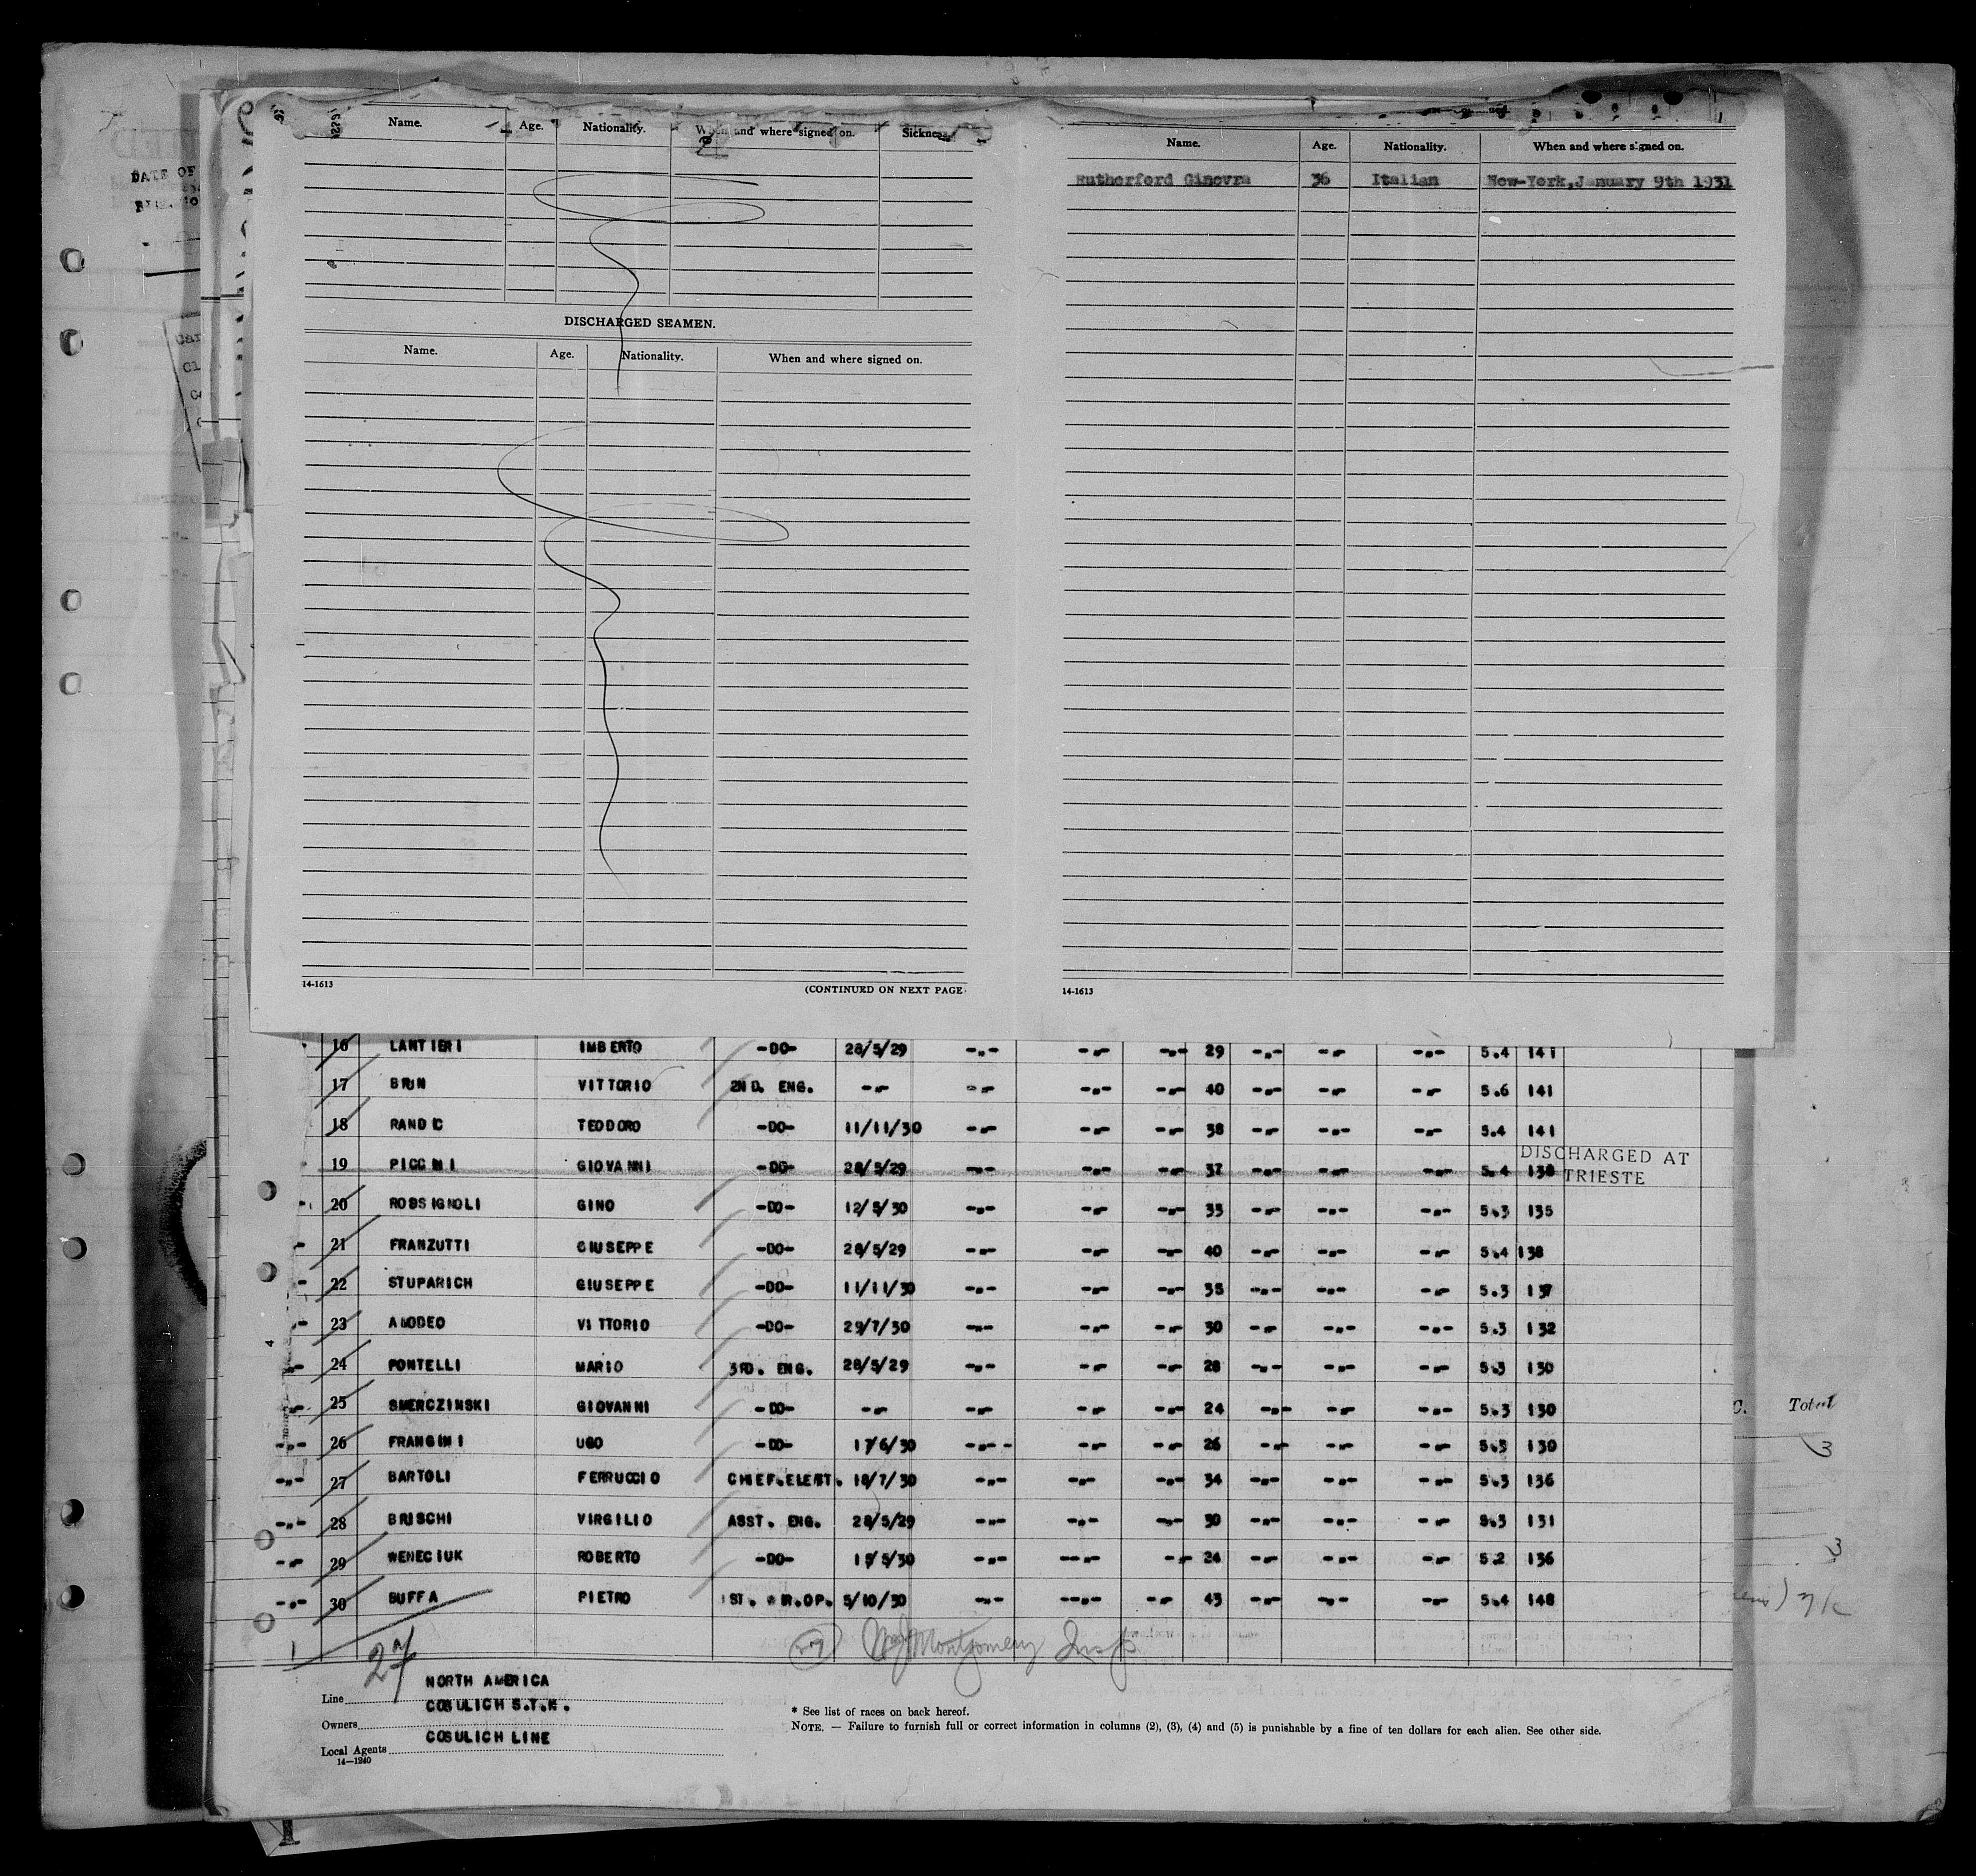 Name. Age. Nationality. When and where signed on. Sickness
DISCHARGED SEAMEN.
Name. Age. Nationality. When and where signed on.
14-1613
(CONTINUED ON NEXT PAGE
Name. Age. Nationality. When and where signed on.
Rutherford Ginevra 36 Italian New-York, January 9th 1931
14-1613
DATE OF
16 LANTIERI IMBERTO -DO- 28/5/29 -.- -.- -.- 29 -.- -.- -.- 5.4 141
17 BRUN VITTORIO 2ND. ENG. -.- -.- -.- -.- 40 -.- -.- -.- 5.6 141
18 RANDIC TEODORO -DO- 11/11/30 -.- -.- -.- 38 -.- -.- -.- 5.4 141
19 PICCINI GIOVANNI -DO- 28/5/29 -.- -.- -.- 37 -.- -.- -.- 5.4 138 DISCHARGED AT
TRIESTE
20 ROSSIGNOLI GINO -DO- 12/5/30 -.- -.- -.- 33 -.- -.- -.- 5.3 135
21 FRANZUTTI GIUSEPPE -DO- 28/5/29 -.- -.- -.- 40 -.- -.- -.- 5.4 138
22 STUPARICH GIUSEPPE -DO- 11/11/30 -.- -.- -.- 35 -.- -.- -.- 5.3 137
23 AMODEO VITTORIO -DO- 29/7/30 -.- -.- -.- 30 -.- -.- -.- 5.3 132
24 PONTELLI MARIO 3RD. ENG. 28/5/29 -.- -.- -.- 28 -.- -.- -.- 5.3 130
25 SMERCZINSKI GIOVANNI -DO- -.- -.- -.- -.- 24 -.- -.- -.- 5.3 130
26 FRANGINI UGO -DO- 17/6/30 -.- -.- -.- 26 -.- -.- -.- 5.3 130
27 BARTOLI FERRUCCIO CHIEF.ELECT. 18/7/30 -.- -.- -.- 34 -.- -.- -.- 5.3 136
28 BRISCHI VIRGILIO ASST. ENG. 28/5/29 -.- -.- -.- 30 -.- -.- -.- 5.3 131
29 WENECIUK ROBERTO -DO- 15/5/30 -.- -.- -.- 24 -.- -.- -.- 5.2 136
30 BUFFA PIETRO 1ST. WR.OP. 5/10/30 -.- -.- -.- 43 -.- -.- -.- 5.4 148
27
27 Montgomery Insp.
Line NORTH AMERICA
Owners COSULICH S.T.N.
Local Agents COSULICH LINE
14-1240
* See list of races on back hereof.
NOTE. — Failure to furnish full or correct information in columns (2), (3), (4) and (5) is punishable by a fine of ten dollars for each alien. See other side.
Total
3
3